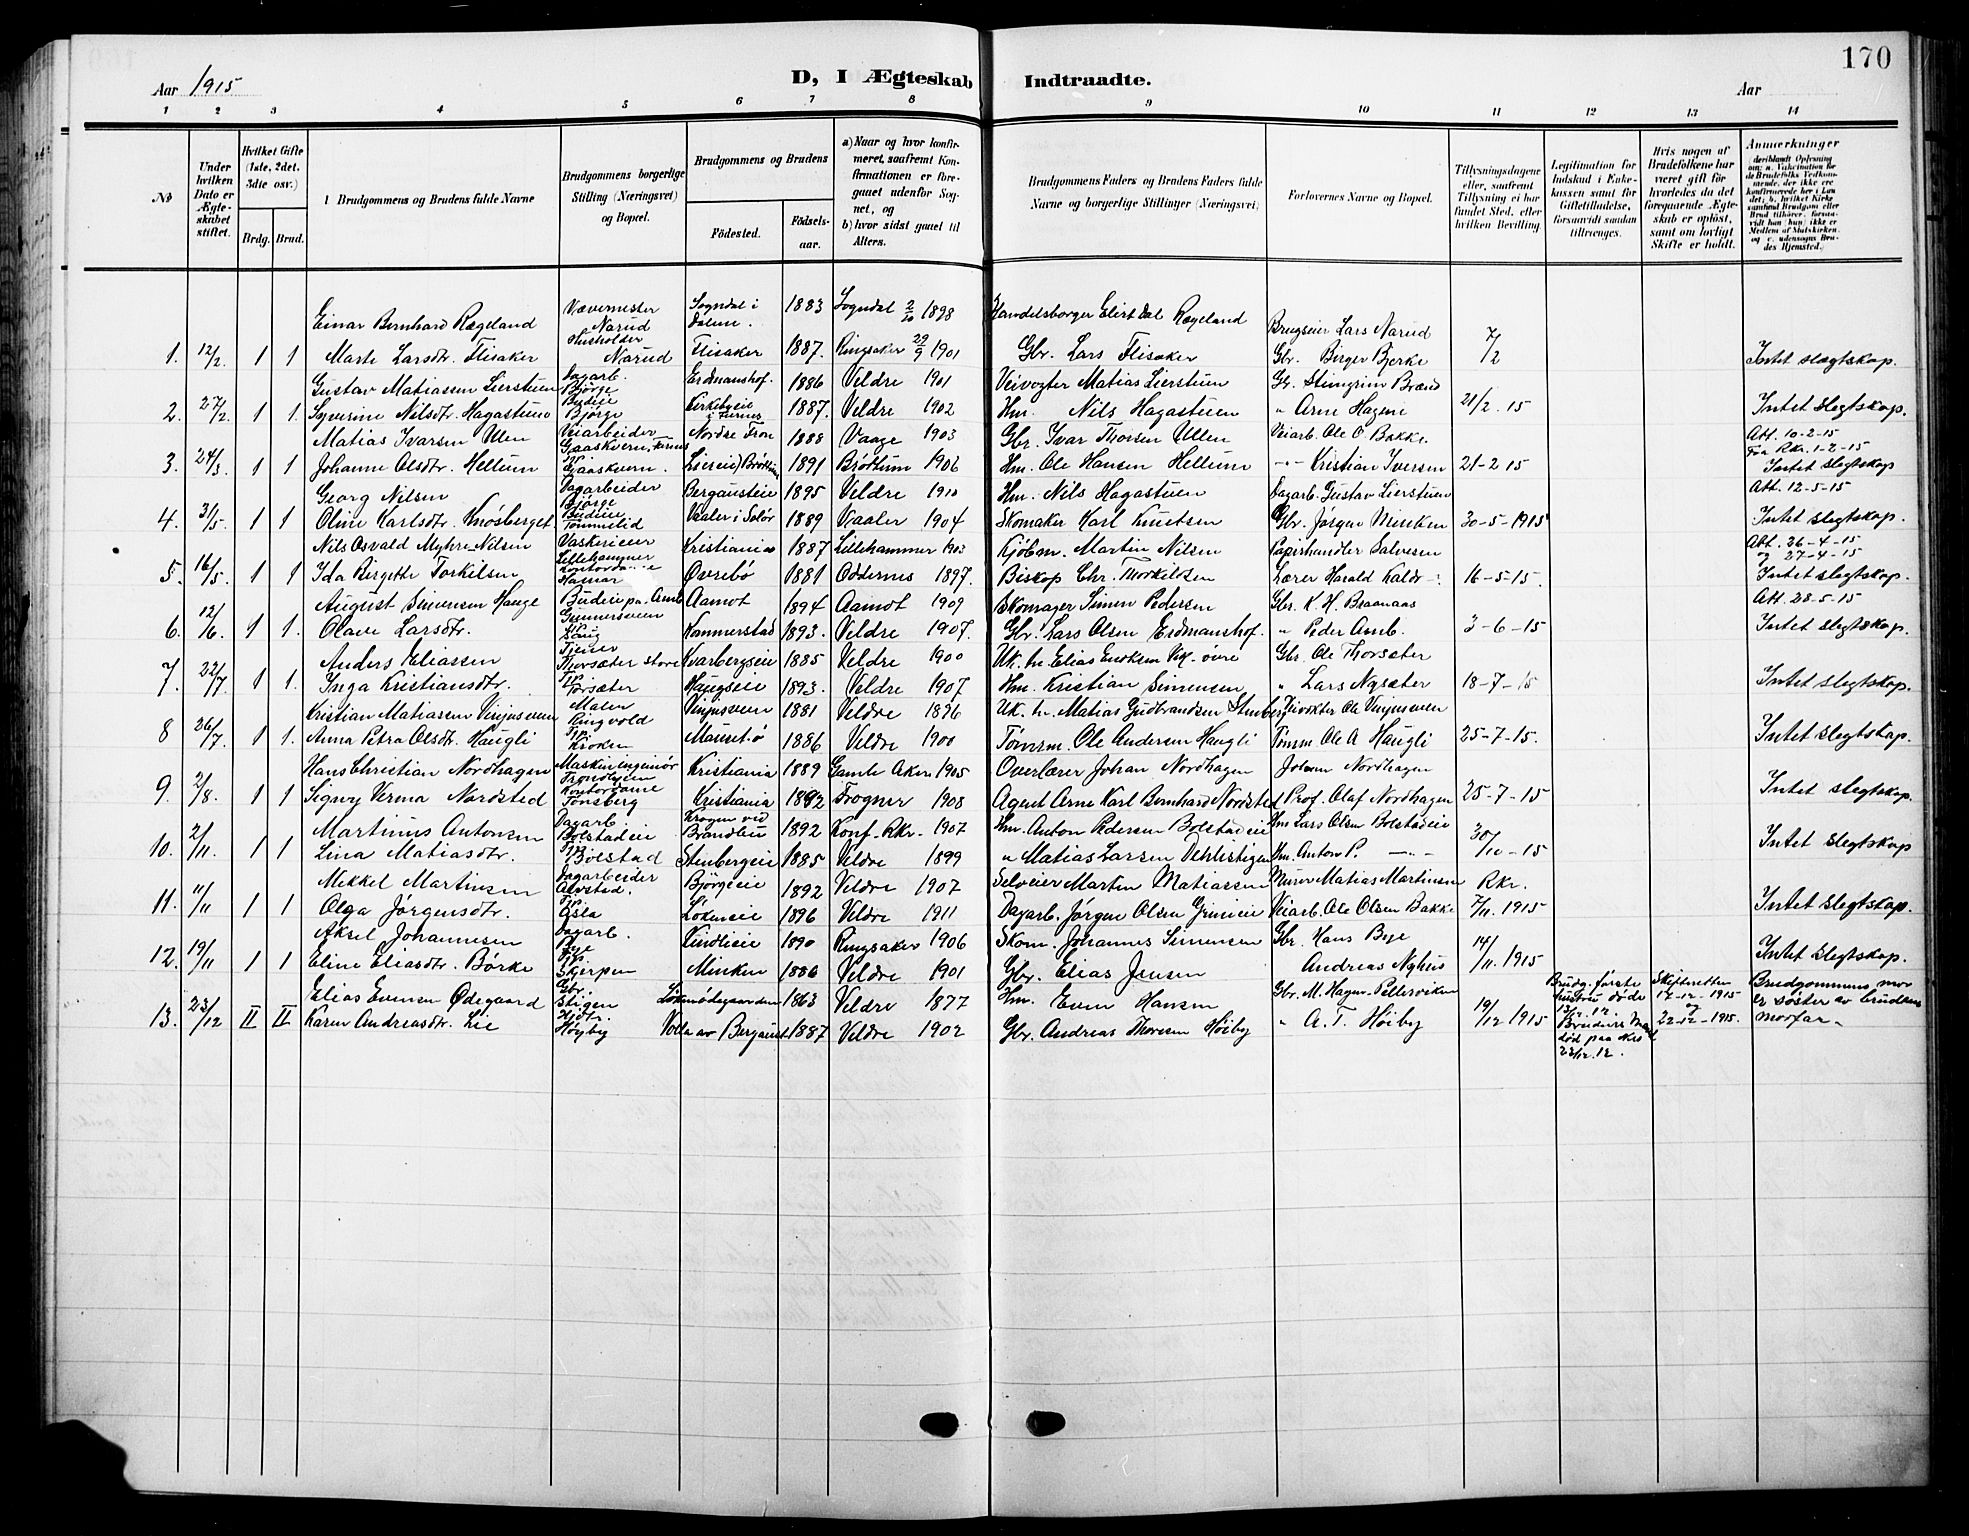 170
Aar 1915
D, I Ægteskab Indtraadte.
Aar
1 2 3 4 5 6 7 8 9 10 11 12 13 14
No
Under hvilken Dato er Ægteskabet stiftet.
Hvilket Gifte (1ste, 2det, 3die osv.)
Brdg. Brud.
Brudgommens og Brudens fulde Navne
Brudgommens borgerlige Stilling (Næringsvei) og Bopæl.
Brudgommens og Brudens
Fødested.
Fødselsaar.
a) Naar og hvor konfirmeret, saafremt Konfirmationen er foregaaet udenfor Sognet, og
b) hvor sidst gaaet til Alters.
Brudgommens Faders og Brudens Faders fulde Navne og borgerlige Stillinger (Næringsvei)
Forlovernes Navne og Bopæl.
Tillysningsdagene eller, saafremt Tillysning ei har fundet Sted, efter hvilken Bevilling.
Legitimation for Indskud i Enkekassen samt for Giftetilladelse, forsaavidt saadan tiltrænges.
Hvis nogen af Brudefolkene har været gift før hvorledes da det foregaaende Ægteskab er opløst, samt om lovligt Skifte er holdt.
Anmerkninger
Einar Bernhard Rægeland Vævemester Narud Sogndal i Dalene. 1883 Sogndal 2/10 1898 Handelsborger Elert Dal Rægeland Brugseier Lars Narud 7/2
1. 12/2 1 1 Marte Larsdtr. Flisaker Husholder Narud Flisaker 1887. Ringsaker 29/9 1901 Gbr. Lars Flisaker Gbr. Birger Bjerke Intet slegtskap.
Gustav Matiassen Lierstuen Dagarb. Bjørge Erdmanshof. 1886 Veldre 1901 Veivogter Matias Lierstuen
2. 27/2 1 1. Syverine Nilsdtr. Hagastuen Budeie Bjørge Kirkebyeie i Furnes 1887. Veldre 1902 Hm. Nils Hagastuen " Arne Hageni 21/2. 15 Intet slegtskap.
Matias Ivarsen Ulen Veiarbeider Gaaskvern, Furnes Nordre Fron 1888 Vaage 1903 Gbr. Ivar Thorsen Ullen Veiarb. Ole O. Bakke. Att. 10-2-15 Fra Rkr. 1-2-15
3. 24/3 1 1 Johanne Olsdtr. Hellum Gaaskvern. Liereie, Brøttum 1891 Brøttum 1906 Hm. Ole Hansen Hellum Kristian Iversen 21-2 15 Intet slegtskap
Georg Nilsen Dagarbeider Bjørge Bergausteie 1895 Veldre 1910 Hm. Nils Hagastuen Dagarb. Gustav Lierstuen Att. 12-5-15
4. 31/5. 1 1 Oline Karlsdtr. Knøsberget Budeie Tømmelid Vaaler i Solør 1889 Vaaler 1904 Skomaker Karl Knutsen Gbr. Jørgen Minken 30-5-1915 Intet slegtskap.
Nils Osvald Myhre-Nilsen Vaskerieier Lillehammer Kristiania 1887 Lillehammer 1903 Kjøbm. Martin Nilsen Papirhandler Salvesen Att. 26-4-15 og 27-4-15
5. 16/5. 1 1 Ida Birgethe Torkilsen Kontordame Hamar Øvrebø 1881 Oddernes 1897. Biskop Chr. Thorkildsen Lærer Harald 16-5-15. Intet slegtskap.
August Simensen Hauge Gunnersveen Aamot 1894 Aamot 1909 Skomager Simen Pedersen Gbr. K. H. Braanaas Att. 28-5-15
6. 12/6. 1 1. Olave Larsdtr. Kammerstad 1893. Veldre 1907. Gbr. Lars Olsen Erdmanshof. " Peder Amb. 3-6-15 Intet slegtskap.
Anders Eliassen Tjener Thorsæter store Kvarbergseie 1885 Veldre 1900 Gbr. Ole Thorsæter
7. 22/7. 1 1. Inga Kristiansdtr. Torsæter Haugseie 1893. Veldre 1907. Hm. Kristian Simensen " Lars Nysæter 18-7-15 Intet slegtskap.
Kristian Matiassen Vinjusveen Maler Ringvold Vinjusveen 1881 Veldre 1896 Uk. m. Matias Gudbrandsen Stenberg Veivokter Ole Vinjusveen
8 26/7. 1 1. Anna Petra Olsdtr. Haugli Tp. Kroken Mauritsø 1886 Veldre 1900 Tømm. Ole Andersen Haugli Tømm Ole A Haugli 25-7-15. Intet slegtskap.
Hans Christian Nordhagen Maskiningeniør Trondhjem Kristiania 1889 Gamle Aker 1905 Overlærer Johan Nordhagen Johan Nordhagen
9. 2/8. 1 1 Signy Verma Nordsted Kontordame Tønsberg Kristiania 1892 Frogner 1908 Agent Arne Karl Bernhard Nordsted Prof. Olaf Nordhagen 25-7-15 Intet slegtskap.
Martinus Antonsen Dagarb. Bolstadeie Krogen ved Brandbu 1892 Konf. Rkr. 1907 Hm. Anton Pedersen Bolstadeie Hm Lars Olsen Bolstadeie
10. 2/11. 1 1 Lina Matiasdtr. Tp. Bolstad Stenbergeie 1885 Veldre 1899 " Matias Larsen Dehlistigen Hm. Anton P. -"- 30/10-15 Intet slegtskap
Mekkel Martinsen Dagarbeider Alvstad. Bjørgeeie 1892 Veldre 1907 Selveier Marten Matiassen Murer Matias Martinsen Rkr.
11. 11/11 1 1 Olga Jørgensdtr. Løkeneie 1896 Veldre 1911 Dagarb. Jørgen Olsen Grinieie Veiarb. Ole Olsen Bakke 7/11. 1915 Intet slegtskap.
Aksel Johannesen Dagarb. Bye Kindlieie 1890 Ringsaker 1906 Skom. Johannes Simensen Gbr. Hans Bye
12. 19/11 1 1 Eline Eliasdtr. Børke Tp. Skjerpen Minken 1886 Veldre 1901 Gbr. Elias Jensen Andreas Nyhus 14/11. 1915 Intet slegtskap.
Elias Evensen Ødegaard Gbr. Stigen Løkenødegaarden 1863 Veldre 1877 Hm. Even Hansen Gbr. M. Hagen-Pellerviken Brudg. første hustru døde 13/12. 12. Skifteretten 17-12-1915 og Brudgommens mor er søster av brudens
13. 23/12 II II Karen Andreasdtr. Lie Høyby Volla av Bergaust 1887 Veldre 1902 Gbr. Andreas Thoresen Høiby " A. T. Høiby 19/12 1915 Brudens Mand død paa 23/12. 12. 22-12-1915. morfar.-